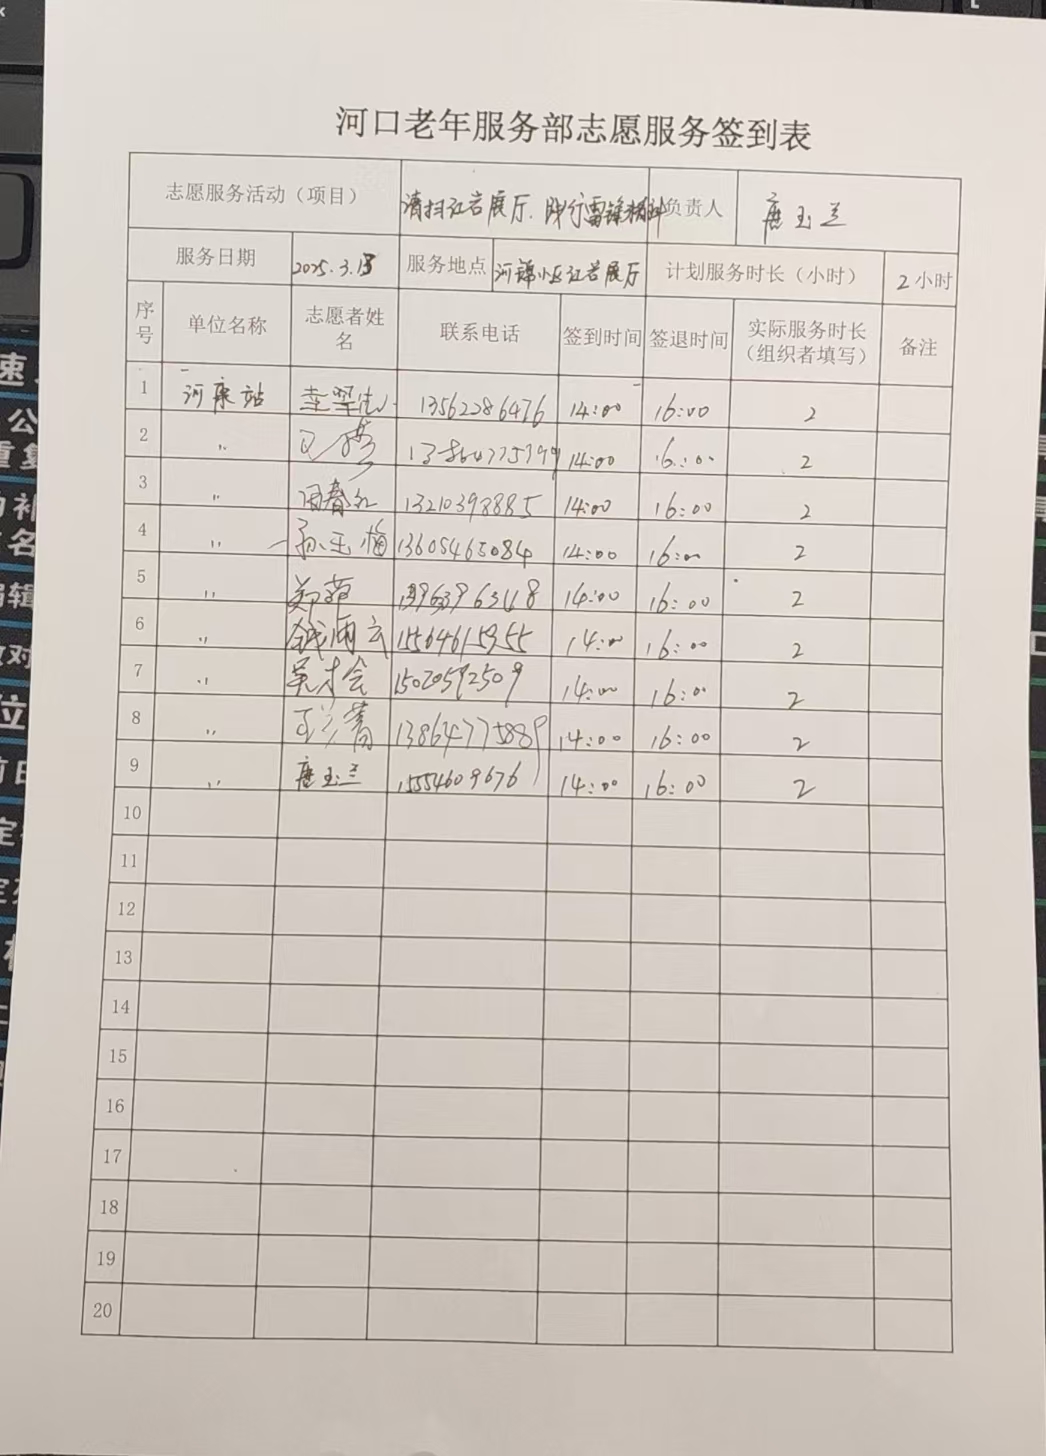 河口老年服务部志愿服务签到表
志愿服务活动（项目） 清扫红岩展厅、践行雷锋精神 负责人 唐玉兰
服务日期 2025.3.13 服务地点 河锦小区红岩展厅 计划服务时长（小时） 2小时
序号 单位名称 志愿者姓名 联系电话 签到时间 签退时间 实际服务时长（组织者填写） 备注
1 河康站 13562286476 14:00 16:00 2
2 〃 14:00 16:00 2
3 〃 周春红 13210398885 14:00 16:00 2
4 〃 孙玉梅 13605465084 14:00 16:00 2
5 〃 郑萍 14:00 16:00 2
6 〃 钱雨云 15564615955 14:00 16:00 2
7 〃 吴才会 15020592509 14:00 16:00 2
8 〃 13864775889 14:00 16:00 2
9 〃 唐玉兰 15554609676 14:00 16:00 2
10
11
12
13
14
15
16
17
18
19
20